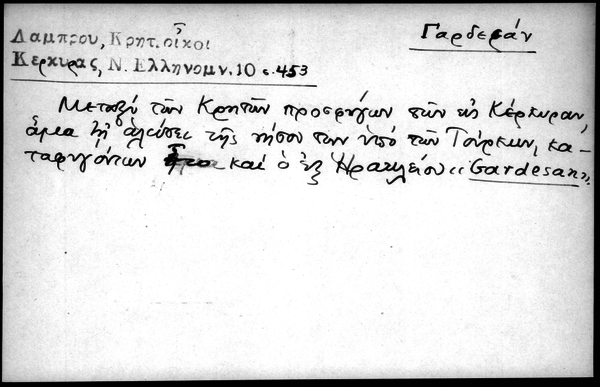 Γαρδεσάν
Λαμπρου, Κρητ. οἶκοι
Κερκυρας, Ν. Ελληνομν. 10 σ. 453
Μεταξὺ τῶν Κρητῶν προσφύγων τῶν εἰς Κέρκυραν,
ἅμα τῇ ἁλώσει τῆς νήσου των ὑπὸ τῶν Τούρκων, κα-
ταφυγόντων καὶ ὁ ἐξ Ἡρακλείου «Gardesan».